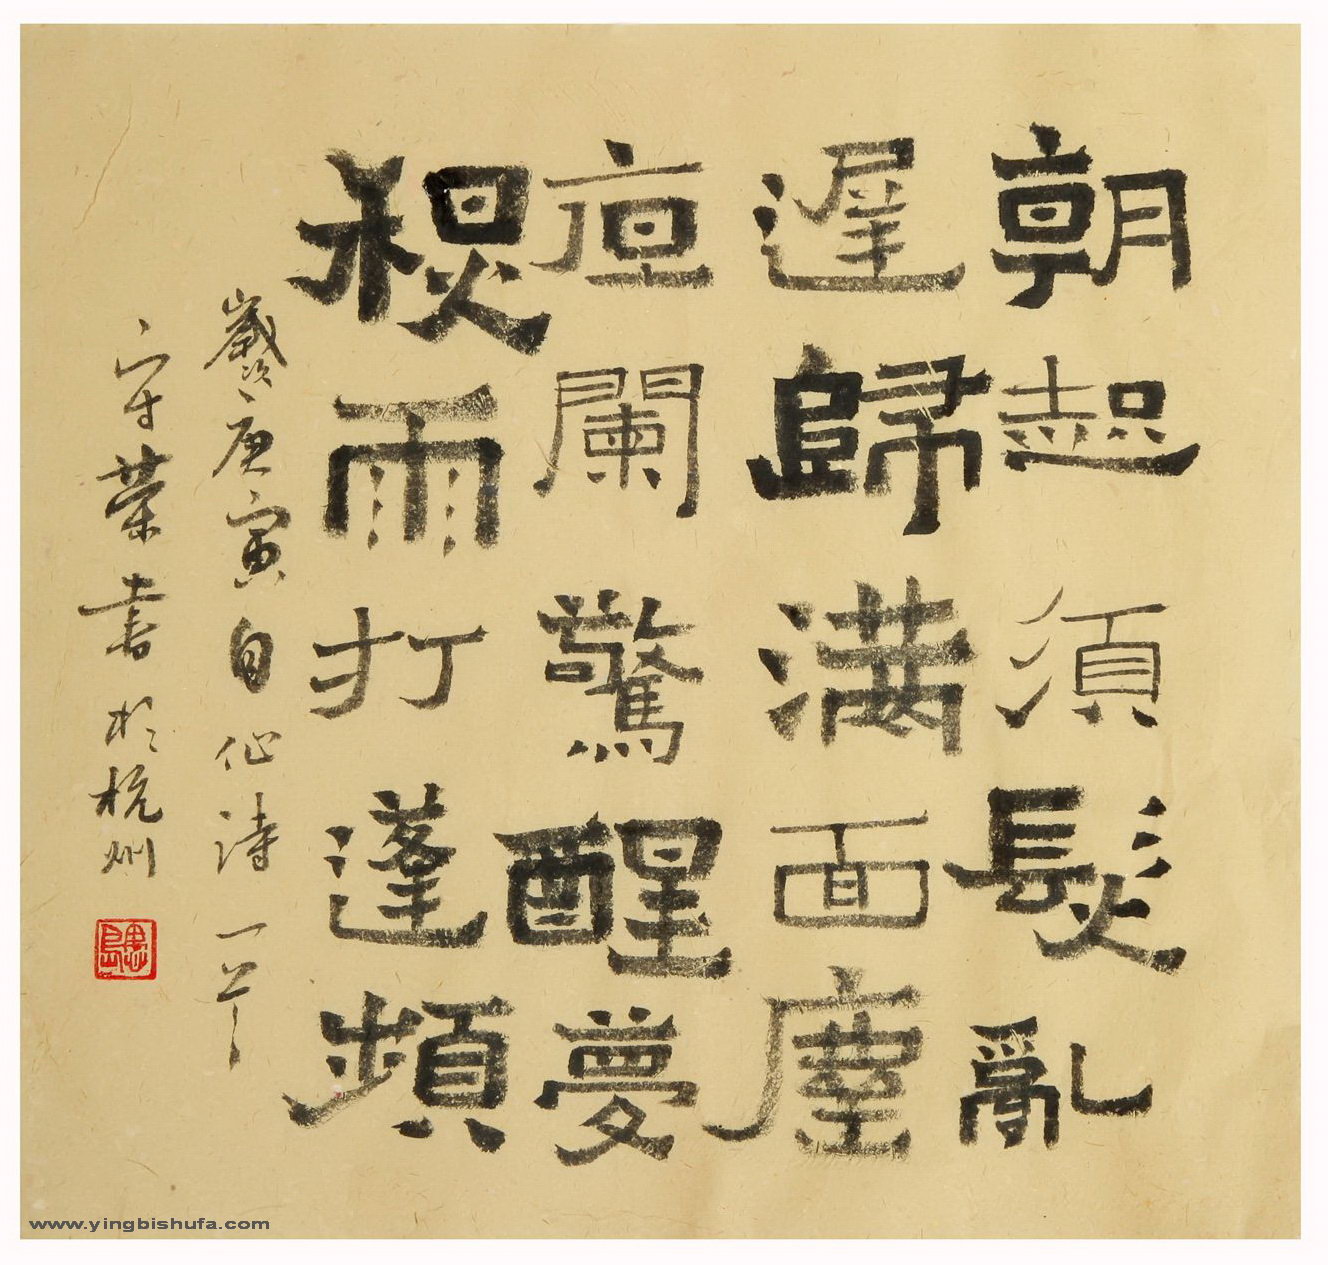 朝起須髮亂
遲歸滿面塵
亱闌驚醒夢
秋雨打蓬頻
歲次庚寅自作诗一首
守荣書於杭州
www.yingbishufa.com